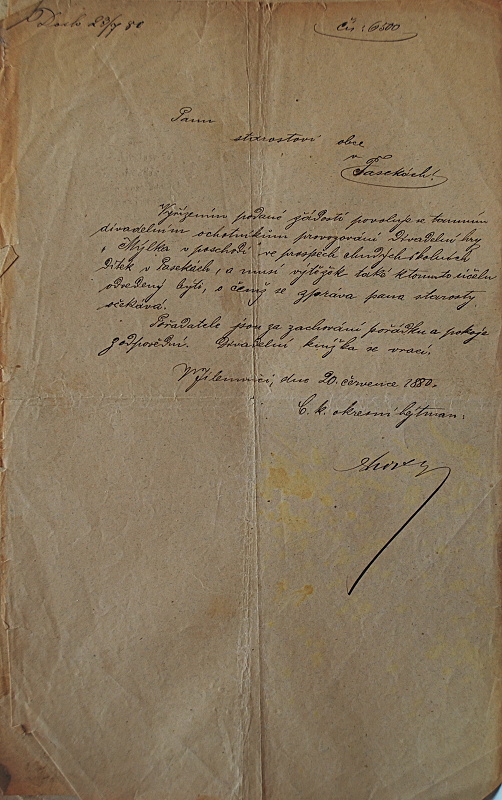 Došlo 23/7 80
Čís: 6500
Panu
starostovi obce
v
Pasekách!
Vyřízením podané žádosti povoluje se tamním
divadelním ochotníkům provozování divadelní hry
„Mýlka v poschodí" ve prospěch chudých školních
dítek v Pasekách, a musí výtěžek také k tomuto účelu
odvedený býti, o čemž se zpráva pana starosty
očekává.
Pořadatelé jsou za zachování pořádku a pokoje
zodpovědni. Divadelní knížka se vrací.
V Jilemnici, dne 20. července 1880.
C. k. okresní hejtman: